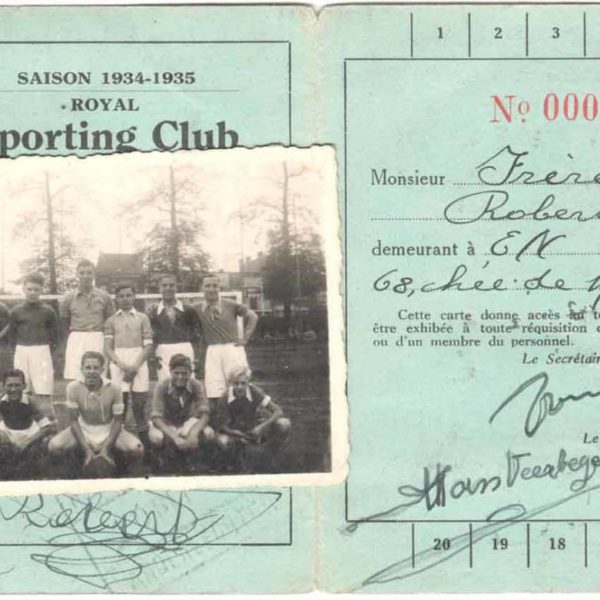 SAISON 1934-1935
ROYAL
porting Club
Robert
1 2 3
No 000
Monsieur Frère
Rober
demeurant à EN
68, chée de
Cette carte donne accès au
être exhibée à toute réquisition
ou d'un membre du personnel.
Le Secrétai
Le
20 19 18